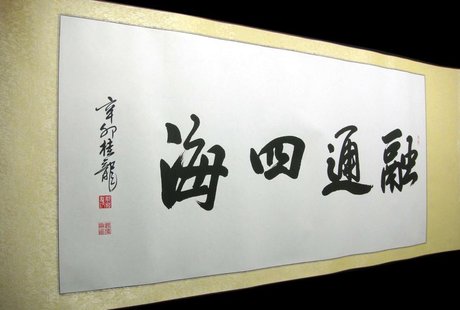 融通四海
辛卯桂龍